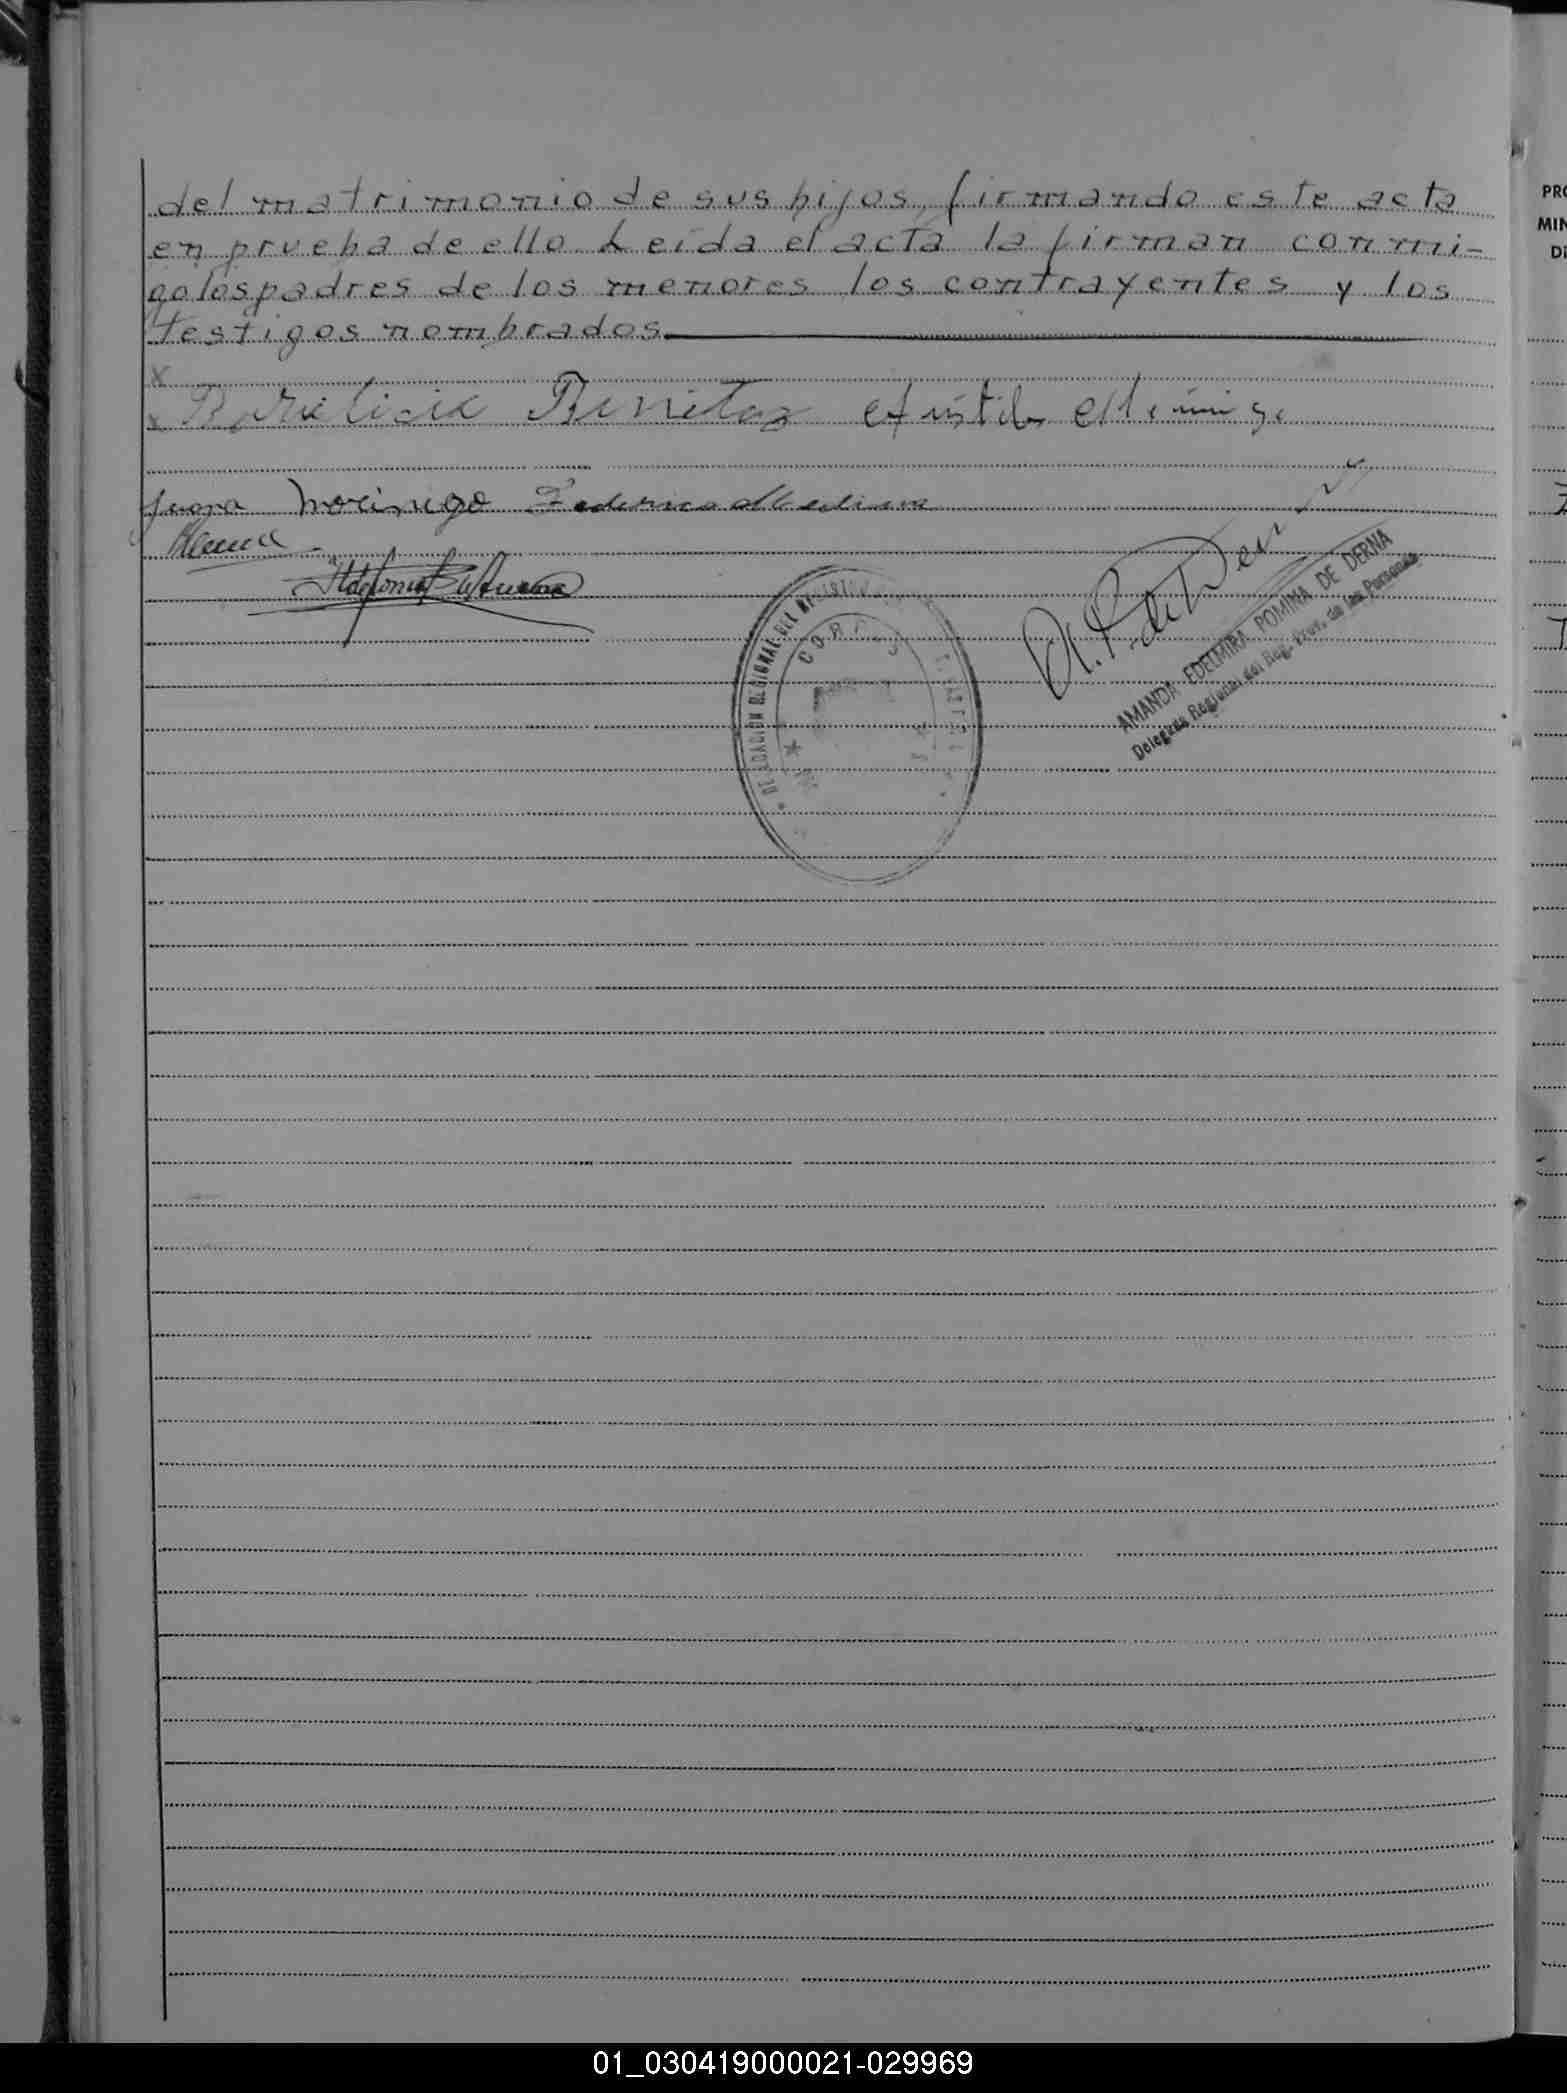 del matrimonio de sus hijos, firmando este acta
en prueba de ello. Leída el acta la firman conmi-
go los padres de los menores los contrayentes y los
testigos nombrados
x
x Benitez
Juana Morinigo Federico Medina
Ildefonso
A. P. de Derna
AMANDA EDELMIRA POMINA DE DERNA
Delegada Regional del Reg. Prov. de las Personas
DELEGACION REGIONAL DEL
CORPUS
PRO
MIN
DI
01_030419000021-029969